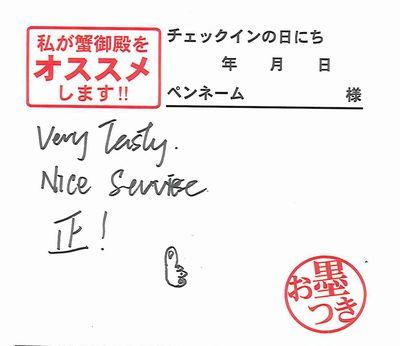 私が蟹御殿を
オススメ
します!!
チェックインの日にち
年 月 日
ペンネーム 様
Very Tasty.
Nice Service
正!
お墨つき